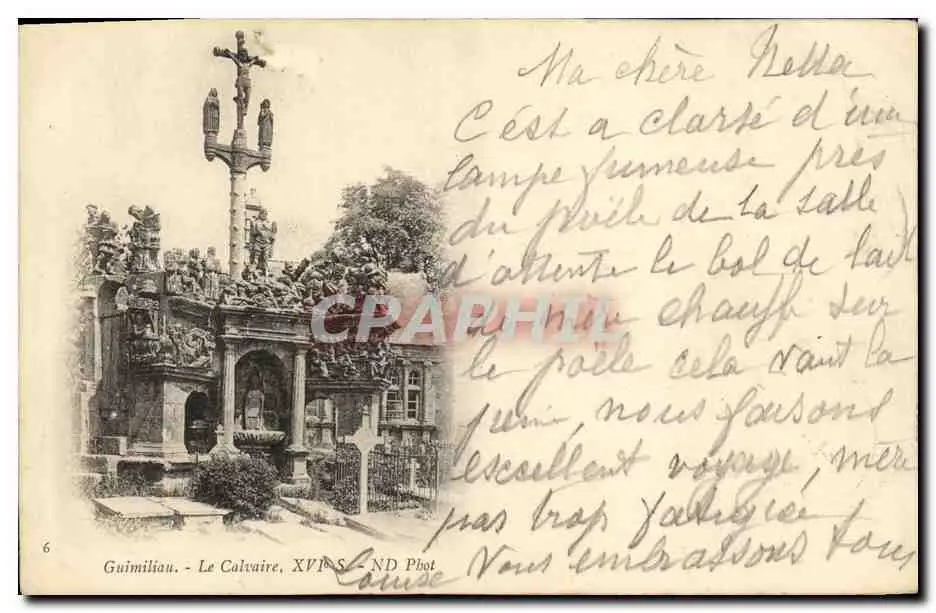 Ma chère Nella
C'ést a clarté d'une
lampe fumeuse près
du poële de la salle
d'attente le bol de lait
de mère chauffe sur
le poële cela vaut la
nous faisons
escellent voyage, mère
pas trop fatigué
Vous embrassons tous
Louise
CPAPHIL
6
Guimiliau. - Le Calvaire, XVIe S. - ND Phot